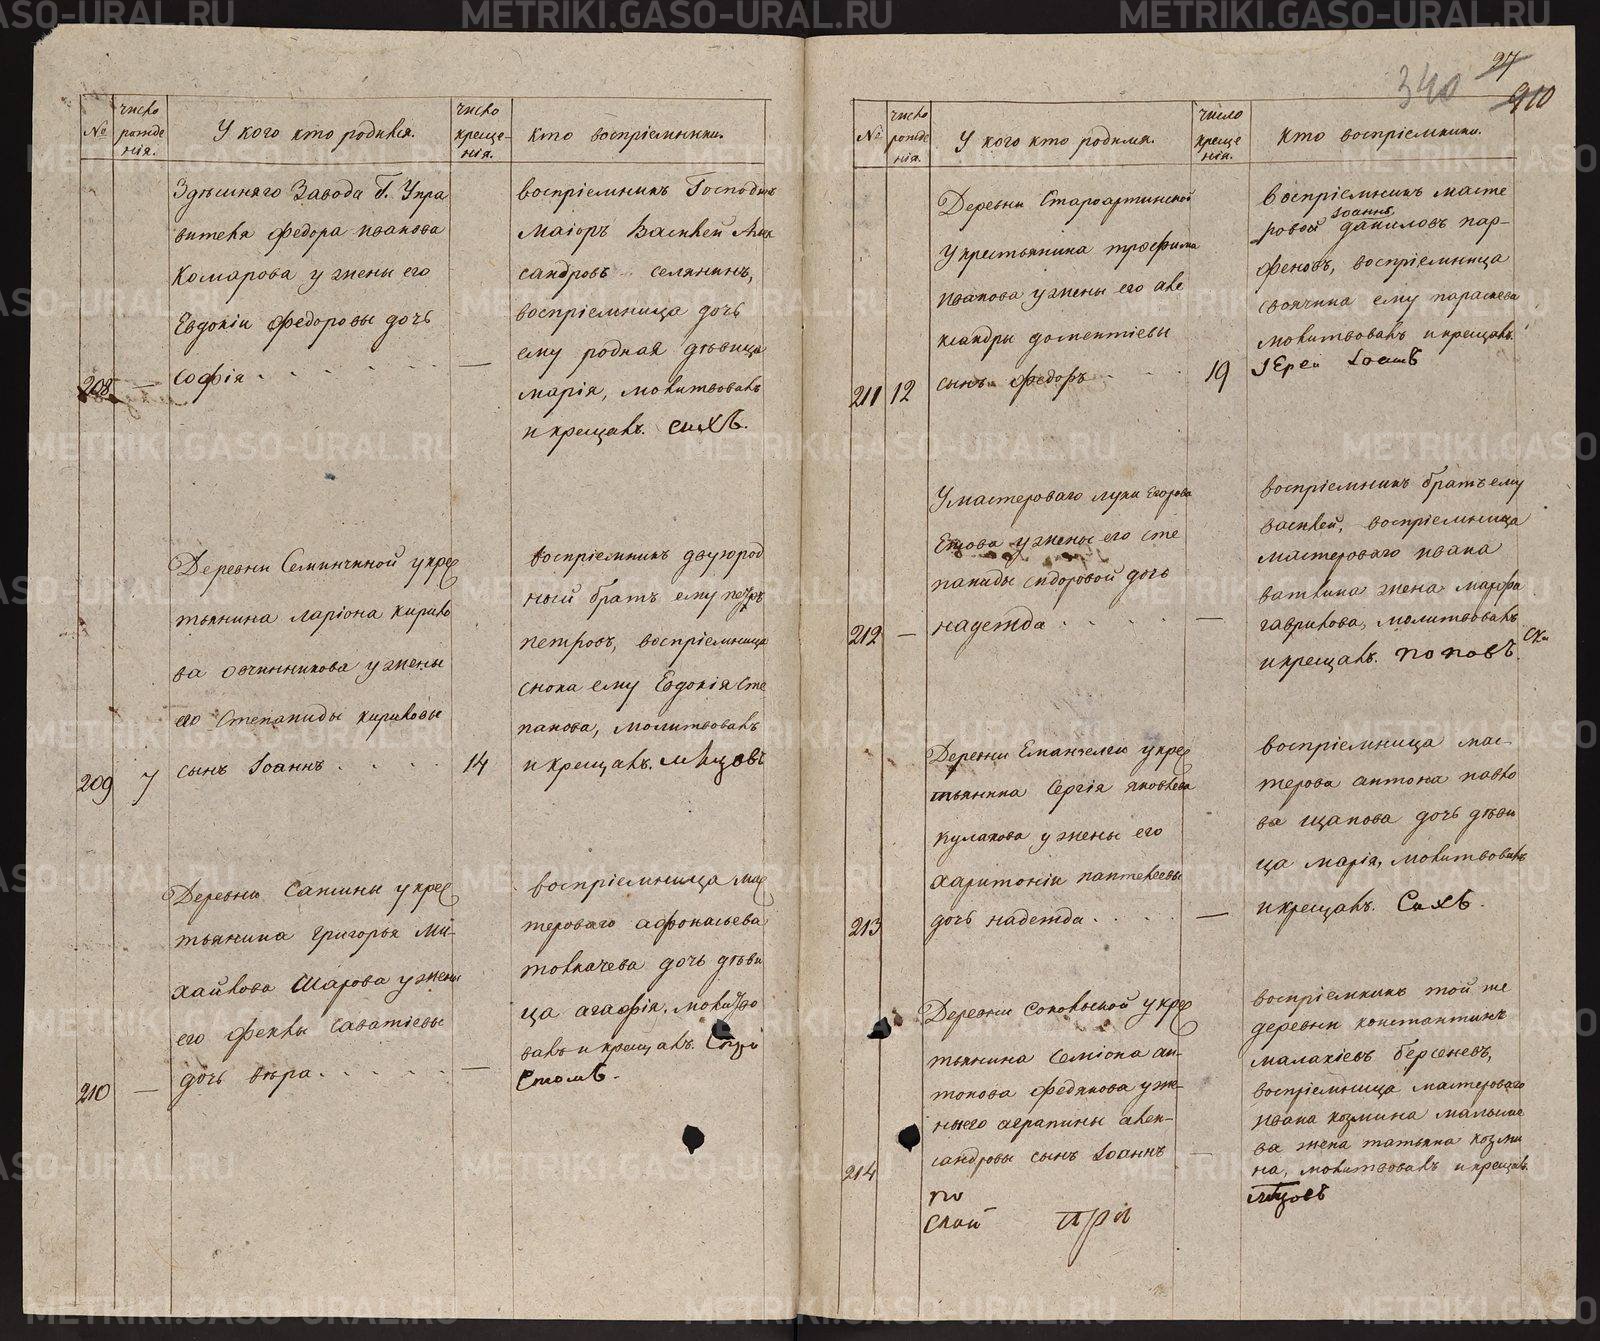 №
число рожде нія.
У кого кто родился.
число креще- нія.
Кто воспріемники.
Здешняго Завода Г. Упра
вителя Федора Иванова
Комарова у жены его
Евдокіи Федоровы дочь
208 — Софія . . . . . . —
воспріемникъ Господинъ
Маіоръ Василей Алек
сандровъ селянинъ,
воспріемница дочь
ему родная девица
марія, молитвовалъ
и крещалъ.
Деревни Семинчиной у крес
тьянина ларіона кирило
ва овчинникова у жены
его Степаниды кириловы
209 7 сынъ Іоаннъ . . . . 14
воспріемникъ двуюрод
ный братъ ему петръ
петровъ, воспріемница
сноха ему Евдокія Сте
панова, молитвовалъ
и крещалъ.
Деревни Сажины у крес
тьянина григорья Ми-
хайлова Шарова у жены
его феклы саватіевы
210 — дочь вера . . . . . —
воспріемница мас
тероваго афонасьева
толкачева дочь деви
ца агафія. молитво
валъ и крещалъ.
27
340
910
№
число рожде нія.
У кого кто родился.
число креще нія.
Кто воспріемники.
Деревни Староартинской
У крестьянина трофима
иванова у жены его але
ксандры доментіевы
211 12 сынъ федоръ . . . . 19
воспріемникъ масте
Іоаннъ
ровой даниловъ пар-
феновъ, воспріемница
своячина ему параскева
молитвовалъ и крещалъ.
Іерей
У мастероваго луки Егорова
у жены его сте
паниды сидоровой дочь
212 — надежда . . . . —
воспріемникъ братъ ему
василей, воспріемница
мастероваго ивана
ваткина жена марфа
гаврилова, молитвовалъ
и крещалъ. поповъ.
Деревни Еманзелги у крес
тьянина Сергія яковлева
кулакова у жены его
харитоніи пантелеевы
213 дочь надежда . . . . —
воспріемница мас-
терова антона павло
ва щапова дочь деви
ца марія, молитвовалъ
и крещалъ.
Деревни соколиской у крес
тьянина семіона ан-
тонова федякова у же-
ны его аграпины алек-
214 сандровы сынъ Іоаннъ —
воспріемникъ той же
деревни константинъ
малахіевъ берсеневъ,
воспріемница мастероваго
ивана козмина малыше
ва жена татьяна козми
на, молитвовалъ и крещалъ.
по
ской при